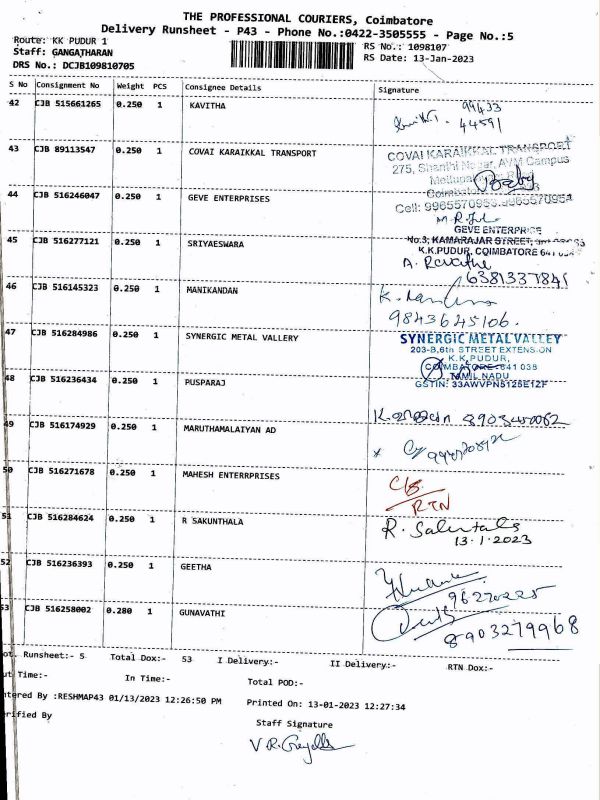 THE PROFESSIONAL COURIERS, Coimbatore
Delivery Runsheet - P43 - Phone No.:0422-3505555 - Page No.:5
Route: KK PUDUR 1
RS No.: 1098107
Staff: GANGATHARAN
RS Date: 13-Jan-2023
DRS No.: DCJB109810705
S No Consignment No Weight PCS Consignee Details Signature
42 CJB 515661265 0.250 1 KAVITHA
43 CJB 89113547 0.250 1 COVAI KARAIKKAL TRANSPORT
COVAI KARAIKKAL TRANSPORT
275, Shanthi Nagar, AVM Campus
44 CJB 516246047 0.250 1 GEVE ENTERPRISES
Cell: 9965570953
GEVE ENTERPRISE
No.3, KAMARAJAR STREET,
K.K.PUDUR, COIMBATORE
45 CJB 516277121 0.250 1 SRIYAESWARA
A. Revathe
6381337841
46 CJB 516145323 0.250 1 MANIKANDAN
9843645106.
47 CJB 516284986 0.250 1 SYNERGIC METAL VALLERY
SYNERGIC METAL VALLEY
203-B,6th STREET EXTENSION
K.K.PUDUR,
COIMBATORE-641 038
TAMIL NADU
GSTIN: 33AWVPN5125E1ZF
48 CJB 516236434 0.250 1 PUSPARAJ
49 CJB 516174929 0.250 1 MARUTHAMALAIYAN AD
50 CJB 516271678 0.250 1 MAHESH ENTERRPRISES
RTN
51 CJB 516284624 0.250 1 R SAKUNTHALA
13.1.2023
52 CJB 516236393 0.250 1 GEETHA
53 CJB 516258002 0.280 1 GUNAVATHI
8903279968
Runsheet:- 5 Total Dox:- 53 I Delivery:- II Delivery:- RTN Dox:-
Time:- In Time:- Total POD:-
By :RESHMAP43 01/13/2023 12:26:50 PM Printed On: 13-01-2023 12:27:34
By
Staff Signature